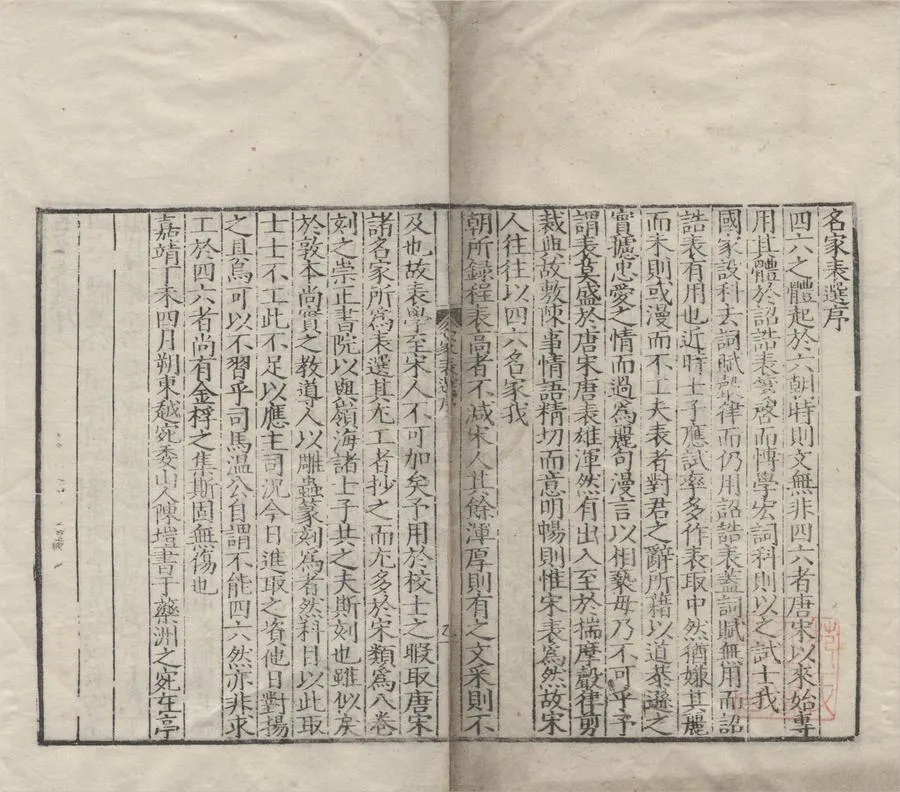 名家表選序
四六之體起於六朝時則文無非四六者唐宋以來始專
用其體於詔誥表箋啓而博學宏詞科則以之試士我
國家設科去詞賦聲律而仍用詔誥表蓋詞賦無用而詔
誥表有用也近時士子應試率多作表取中然猶嫌其麗
而未則或漫而不工夫表者對君之辭所藉以道恭遜之
實攄忠愛之情而過為麗句漫言以相褻毋乃不可乎予
謂表莫盛於唐宋唐表雄渾然有出入至於揣摩聲律剪
裁典故敷陳事情語精切而意明暢則惟宋表為然故宋
人往往以四六名家我
朝所錄程表高者不减宋人其餘渾厚則有之文采則不
名家表選序
及也故表學至宋人不可加矣予用於校士之暇取唐宋
諸名家所為表選其尤工者抄之而尤多於宋類為八卷
刻之崇正書院以與嶺海諸士子共之夫斯刻也雖似戾
於敦本尚實之教導人以雕蟲篆刻為者然科目以此取
士士不工此不足以應主司況今日進取之資他日對揚
之具焉可以不習乎司馬溫公自謂不能四六然亦非求
工於四六者尚有金桴之集斯固無傷也
嘉靖丁未四月朔東越宛委山人陳塏書于藥洲之宛在亭